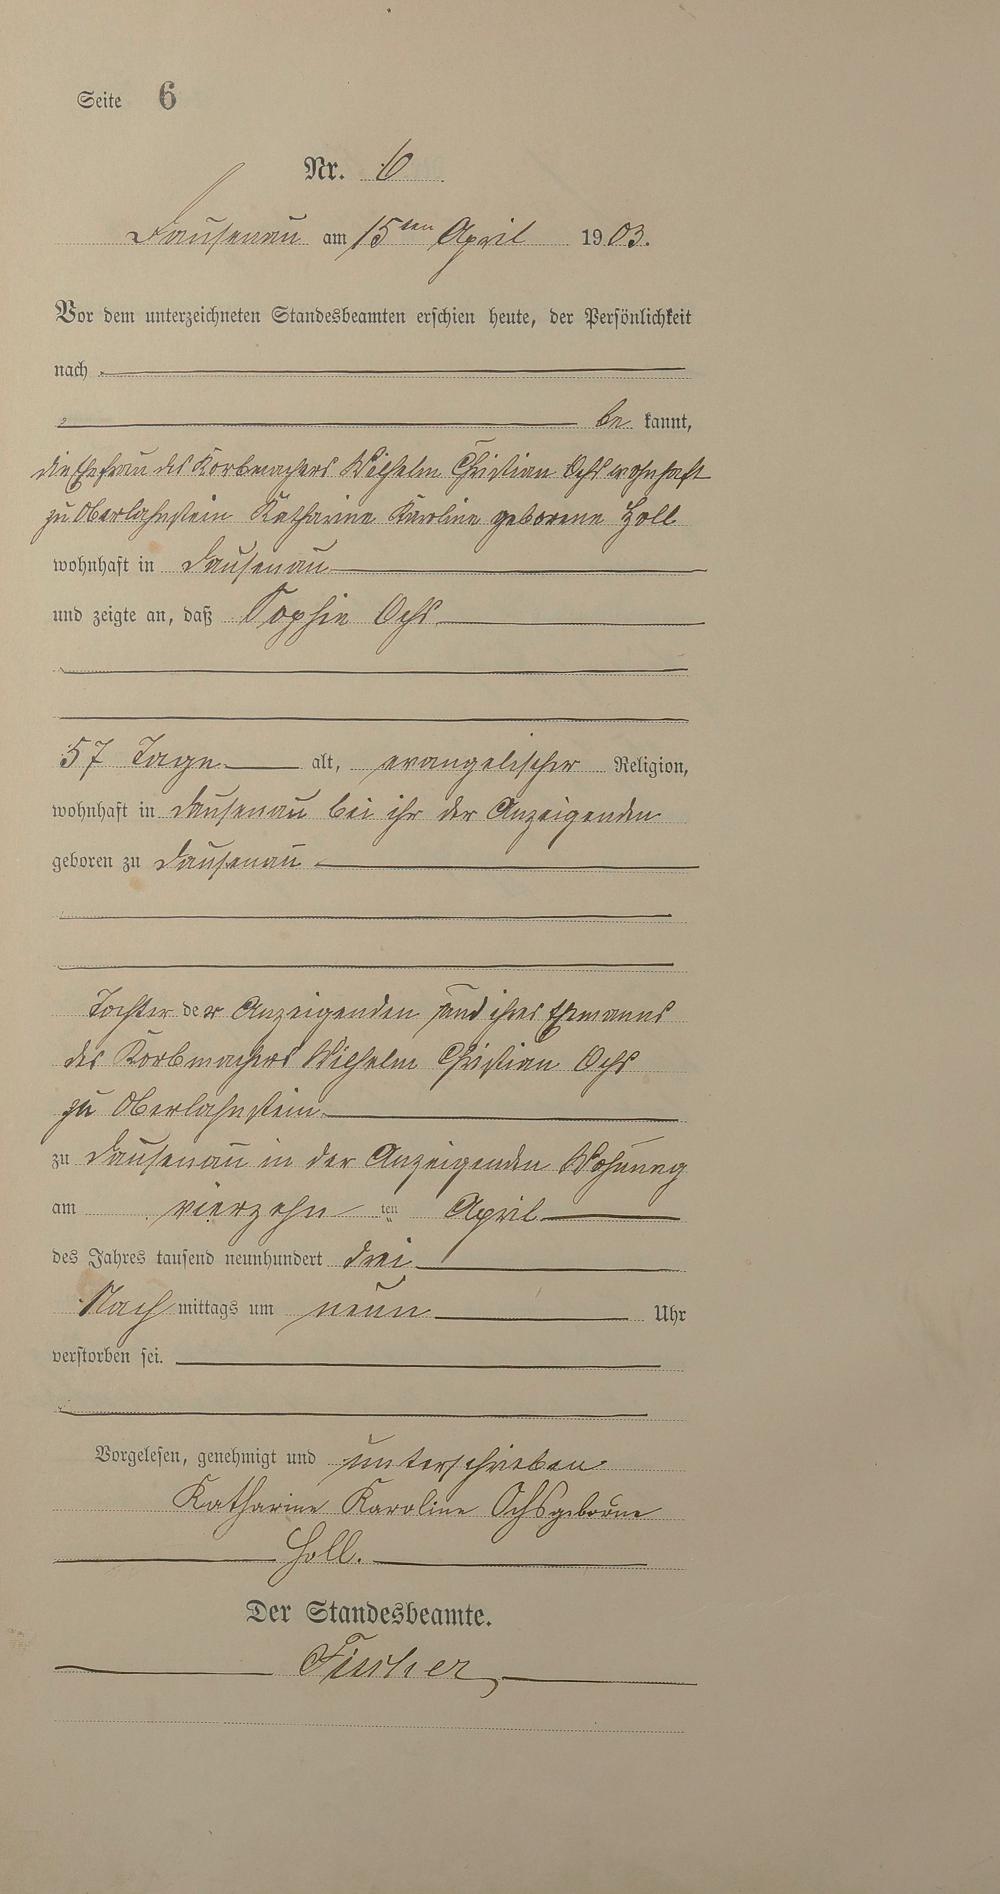 Seite 6
Nr. 6
Dausenau am 15ten April 1903.
Vor dem unterzeichneten Standesbeamten erschien heute, der Persönlichkeit
nach
be kannt,
die Ehefrau des Korbmachers Wilhelm Christian Ochs wohnhaft
zu Oberlahnstein Katharine Karoline geborene Holl
wohnhaft in Dausenau
und zeigte an, daß Sophie Ochs
57 Tage alt, evangelischer Religion,
wohnhaft in Dausenau bei ihr der Anzeigenden
geboren zu Dausenau
Tochter der Anzeigenden und ihres Ehmanns
des Korbmachers Wilhelm Christian Ochs
zu Oberlahnstein
zu Dausenau in der Anzeigenden Wohnung
am vierzehn ten April
des Jahres tausend neunhundert drei
Nach mittags um neun Uhr
verstorben sei.
Vorgelesen, genehmigt und unterschrieben
Katharine Karoline Ochs geborne
Holl.
Der Standesbeamte.
Fischer